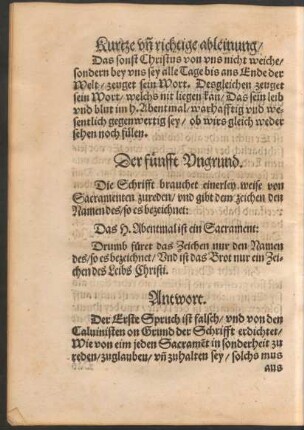 Kurtze vñ richtige ableinung/
Das sonst Christus von vns nicht weiche/
sondern bey vns sey alle Tage bis ans Ende der
Welt/ zeuget sein Wort. Desgleichen zeuget
sein Wort/ welchs nit liegen kan/ Das sein leib
vnd blut im h. Abentmal warhafftig vnd we-
sentlich gegenwertig sey/ ob wirs gleich weder
sehen noch fülen.
Der fünfft Vngrund.
Die Schrifft brauchet einerley weise von
Sacramenten zureden/ vnd gibt dem zeichen den
Namen des/ so es bezeichnet:
Das H. Abentmal ist ein Sacrament:
Drumb füret das Zeichen nur den Namen
des/ so es bezeichnet/ Vnd ist das Brot nur ein Zei-
chen des Leibs Christi.
Antwort.
Der Erste Spruch ist falsch/ vnd von den
Caluinisten on Grund der Schrifft erdichtet/
Wie von eim jeden Sacramēt in sonderheit zu
reden/ zuglauben/ vñ zuhalten sey/ solchs mus
aus